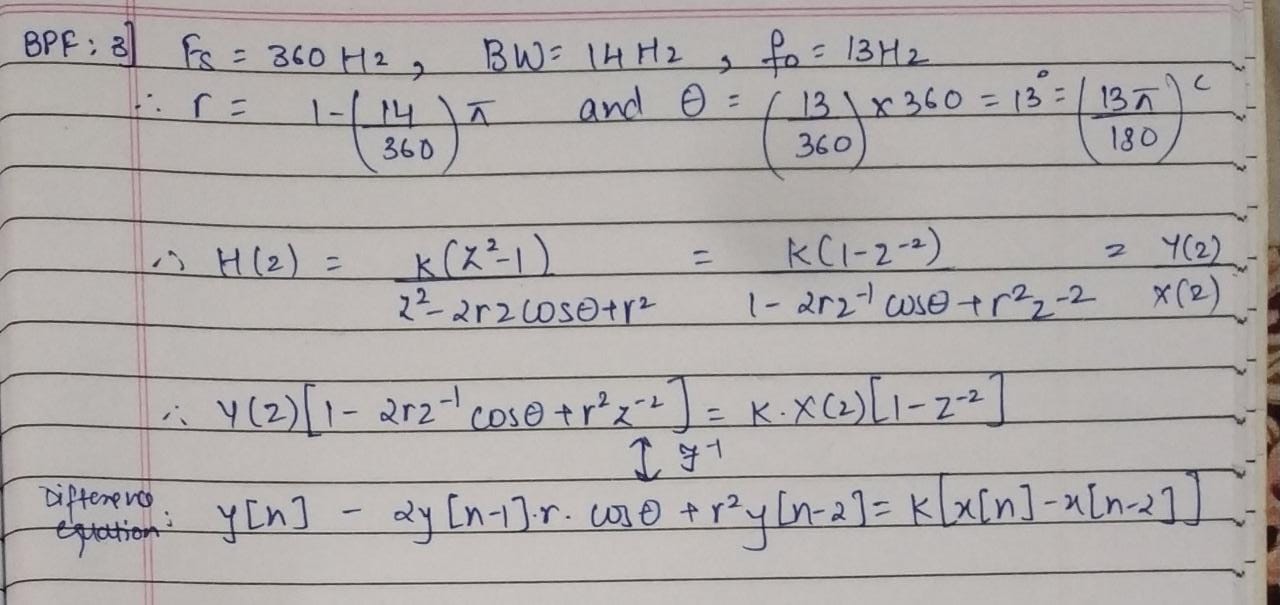 BPF: 3] Fs = 360 Hz, BW = 14 Hz, f₀ = 13 Hz
∴ r = 1-(14/360)π and θ = (13/360) × 360 = 13° = (13π/180)ᶜ
∴ H(z) = K(z²-1)/(z² - 2rz cosθ + r²) = K(1-z⁻²)/(1 - 2rz⁻¹ cosθ + r²z⁻²) = Y(z)/X(z)
∴ Y(z)[1 - 2rz⁻¹ cosθ + r²z⁻²] = K·X(z)[1-z⁻²]
↕ z⁻¹
Difference equation: y[n] - 2y[n-1]·r·cosθ + r²y[n-2] = K[x[n] - x[n-2]]